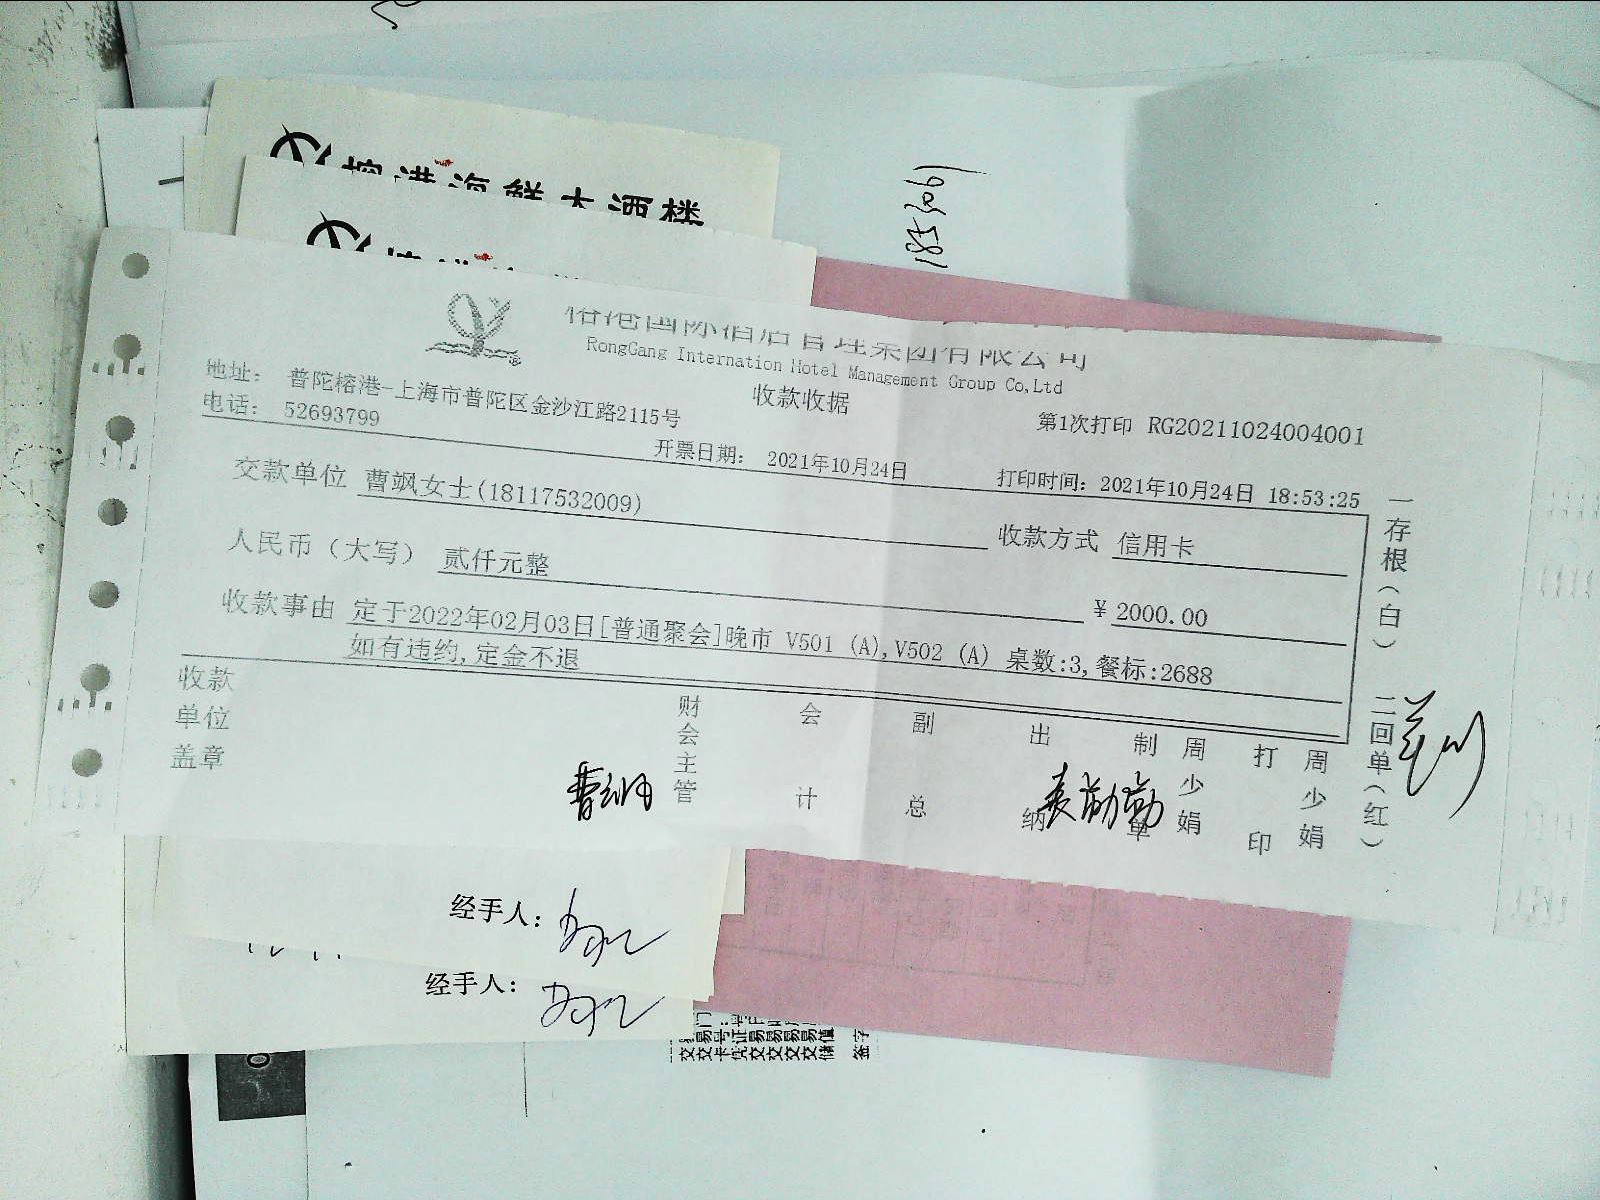 榕港海鲜大酒楼
榕港国际酒店管理集团有限公司
RongGang Internation Hotel Management Group Co,Ltd
收款收据
地址： 普陀榕港-上海市普陀区金沙江路2115号
电话： 52693799
第1次打印 RG20211024004001
开票日期： 2021年10月24日
打印时间：2021年10月24日 18:53:25
交款单位 曹飒女士(18117532009)
收款方式 信用卡
人民币（大写） 贰仟元整
¥ 2000.00
收款事由 定于2022年02月03日[普通聚会]晚市 V501 (A),V502 (A) 桌数:3,餐标:2688
如有违约,定金不退
收款单位盖章
财会主管
会计
副总
出纳
制单
周少娟
打印
周少娟
一存根（白）
二回单（红）
1853061
经手人：
经手人：